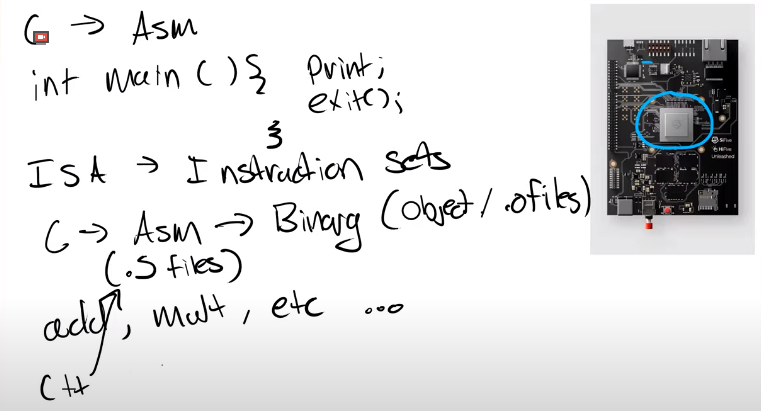 C → Asm
int main () { print;
exit();
}
ISA → Instruction sets
C → Asm → Binary (object/.ofiles)
(.S files)
add, mult, etc ...
C++
SiFive
HiFive
Unleashed